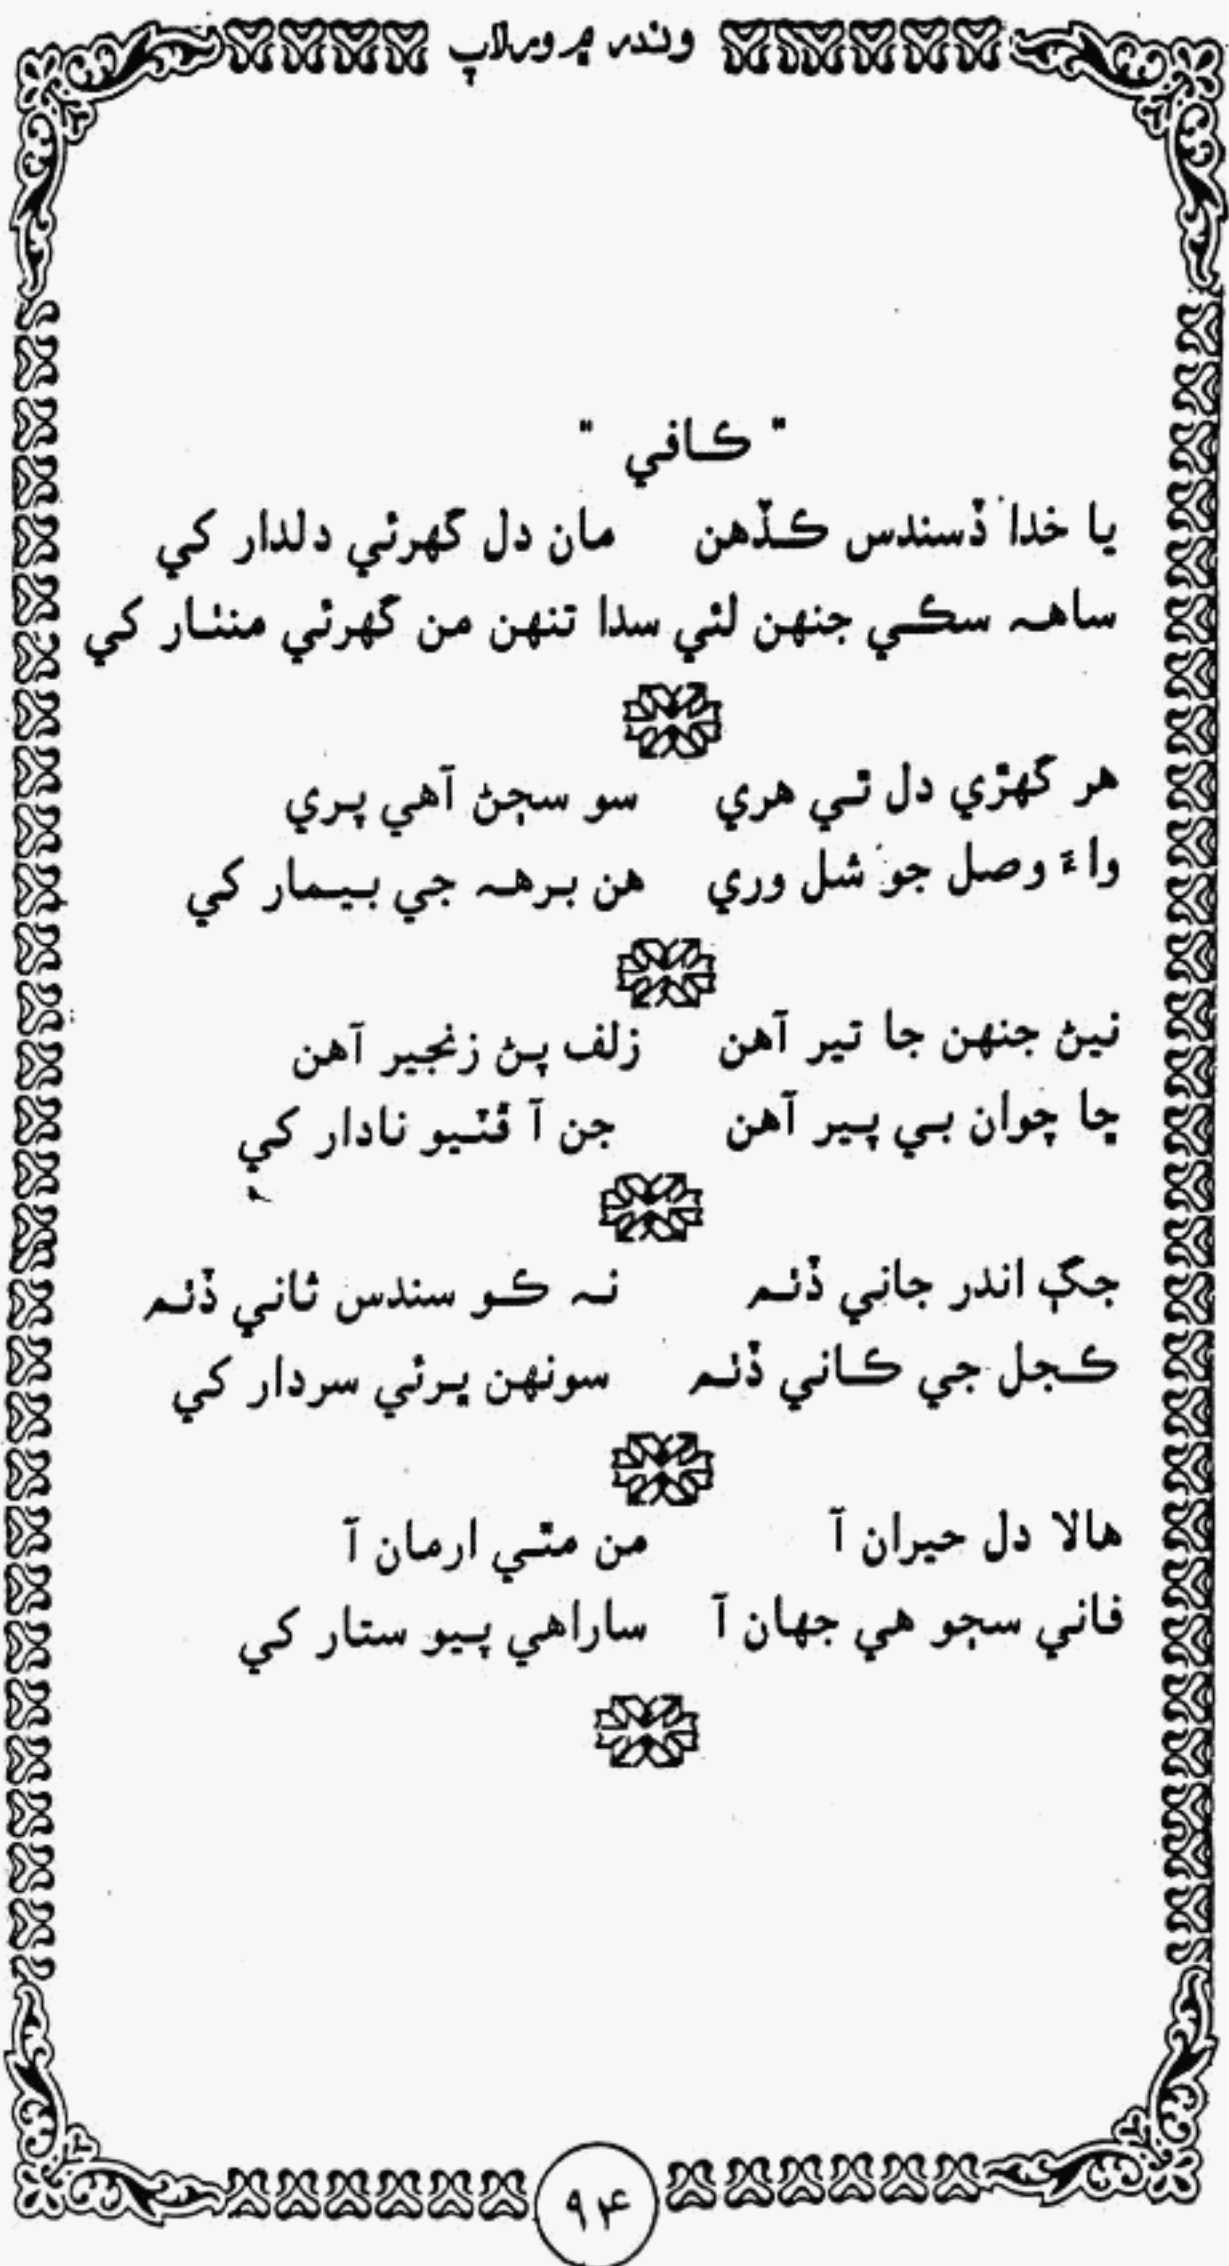 وندر ۾ ورلاپ
" ڪافي "
يا خدا ڏسندس ڪڏهن مان دل گهرئي دلدار کي
ساهه سڪي جنهن لئي سدا تنهن من گهرئي منٺار کي
هر گهڙي دل ٿي هري سو سڄڻ آهي پري
واءُ وصل جو شل وري هن برهه جي بيمار کي
نيڻ جنهن جا تير آهن زلف پڻ زنجير آهن
ڇا چوان بي پير آهن جن آ ڦٽيو نادار کي
جڳ اندر جاني ڏٺم نه ڪو سندس ثاني ڏٺم
ڪجل جي ڪاني ڏٺم سونهن ڀرئي سردار کي
هالا دل حيران آ من مٿي ارمان آ
فاني سڄو هي جهان آ ساراهي پيو ستار کي
۹۴